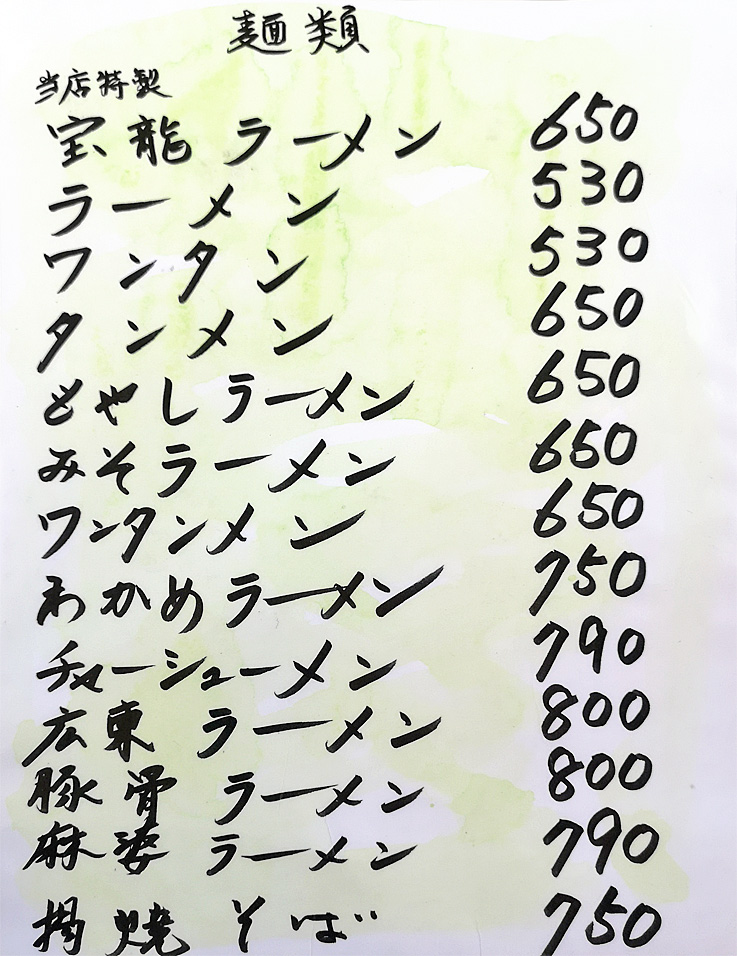 麺類
当店特製
宝龍 ラーメン 650
ラーメン 530
ワンタン 530
タンメン 650
もやしラーメン 650
みそラーメン 650
ワンタンメン 650
わかめラーメン 750
チャーシューメン 790
広東 ラーメン 800
豚骨 ラーメン 800
麻婆 ラーメン 790
揚焼そば 750